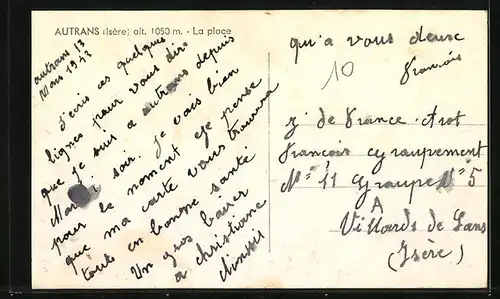 AUTRANS (Isère) alt. 1050 m. - La place
autrans 13
Mars 1943
J'écris ces quelques
lignes pour vous dire
que je suis a autrans depuis
Mardi soir. Je vais bien
pour le moment et je pense
que ma carte vous trouvera
toute en bonne santé
Un gros baiser
a christiane
qu'a vous deuse
10
francois
J. de France
François Groupement
N° 11 Groupe N° 5
A
Villards de Lans
(Isère)